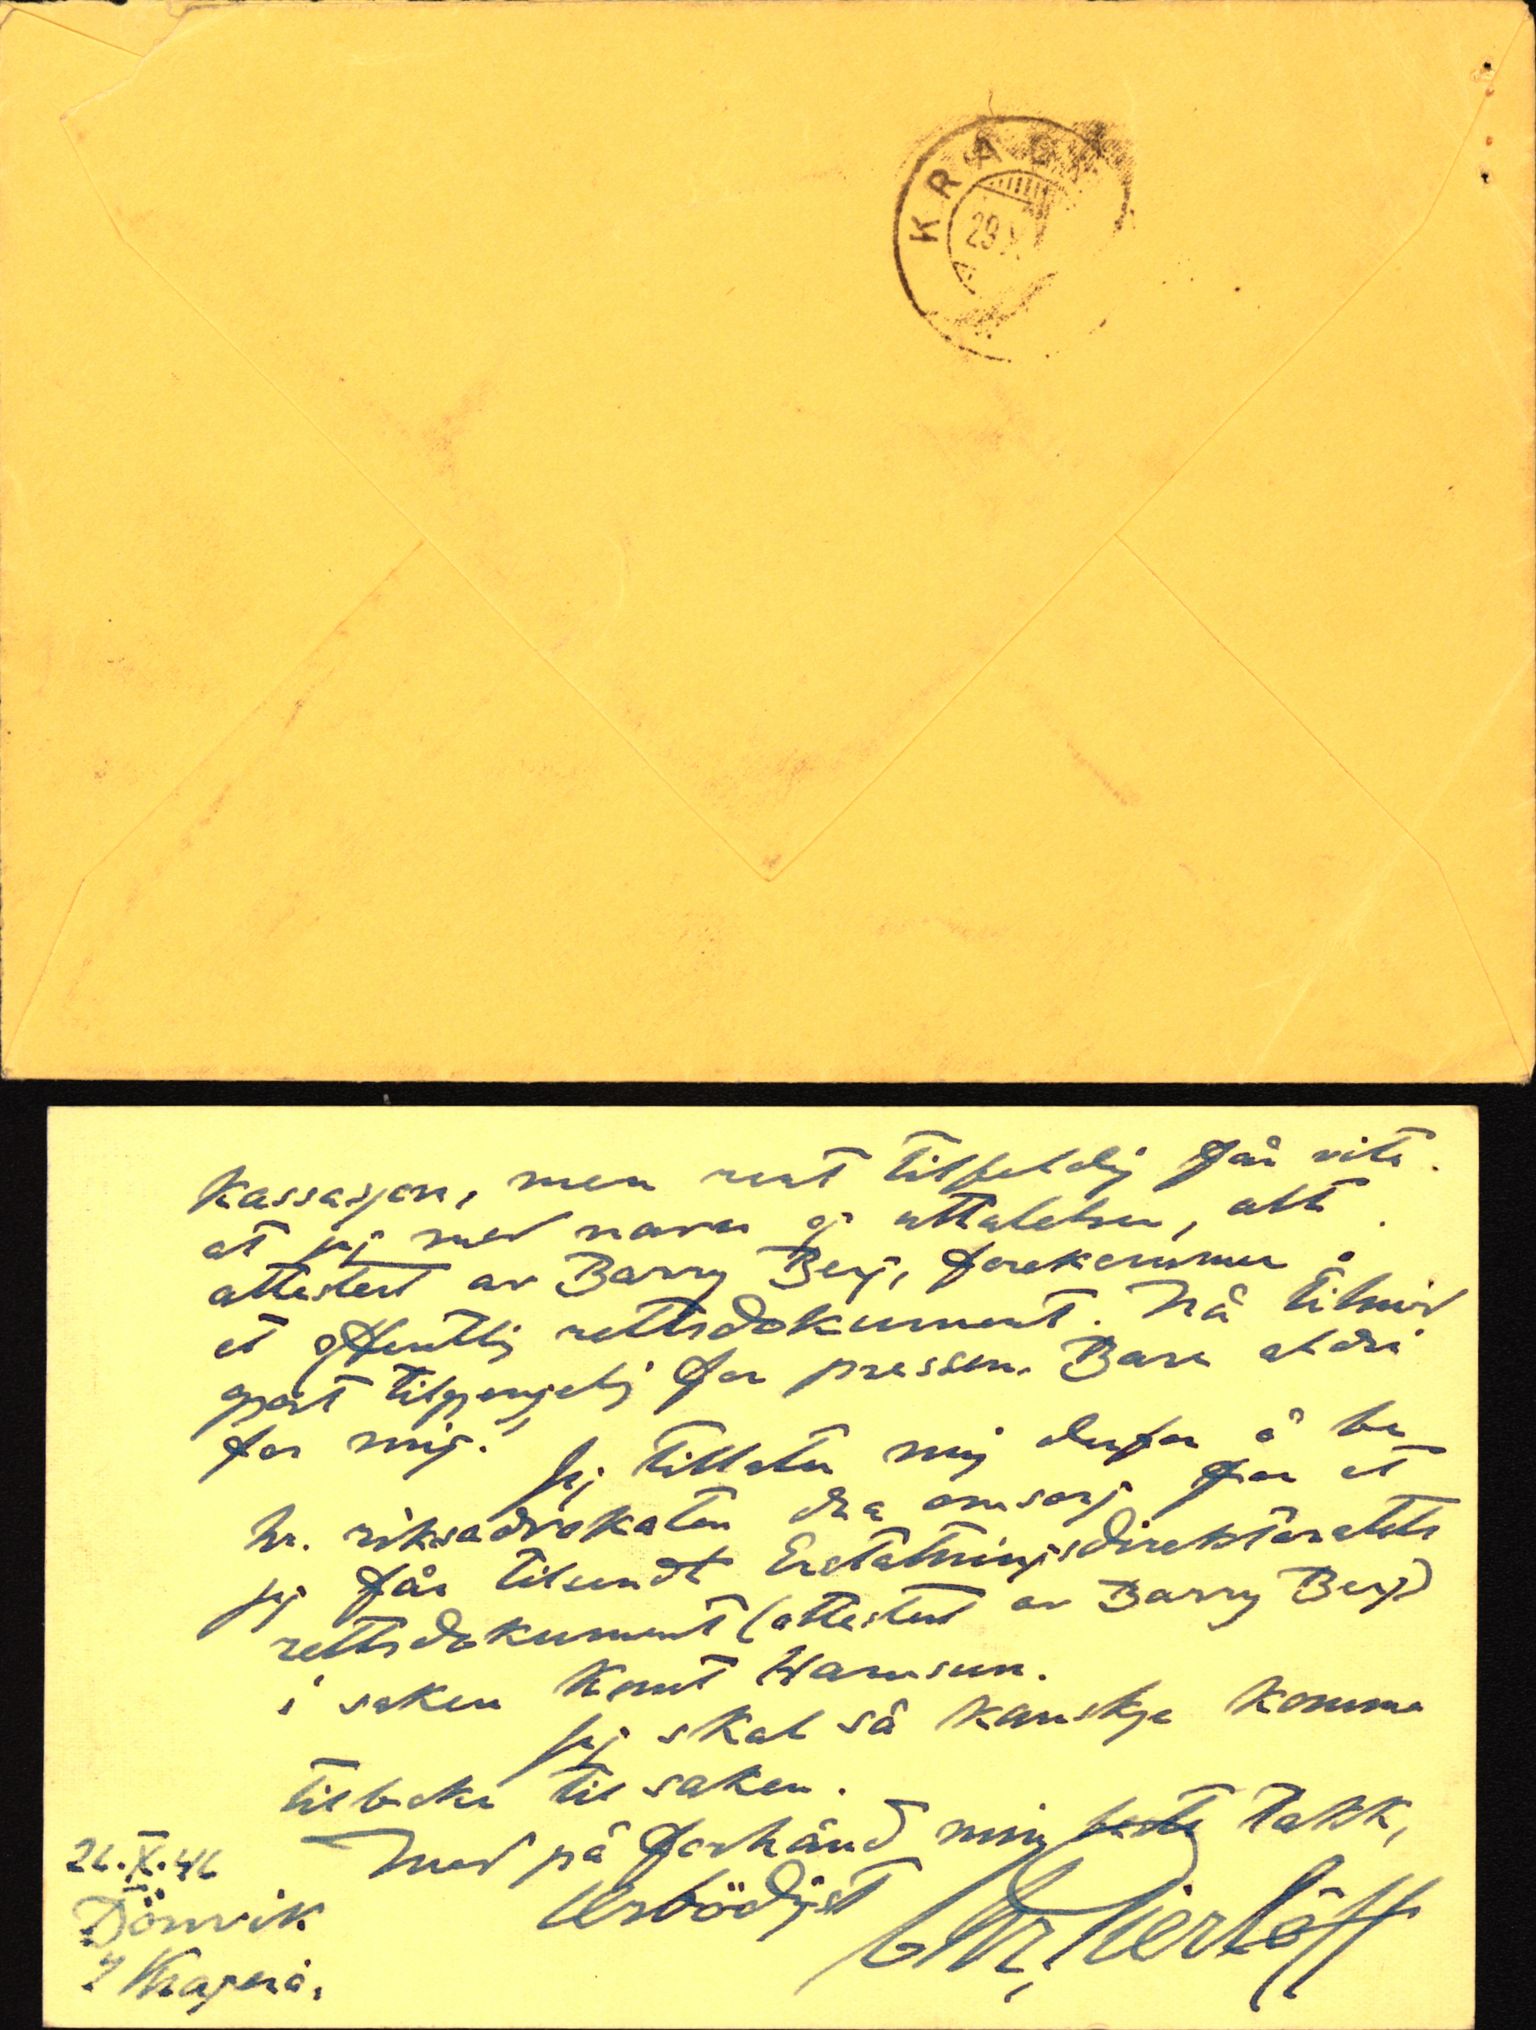 KRAGE
29 X
A
Kassasjon, men rent tilfeldig får vite
at jeg med navn og uttalelser, alt
attestert av Barry Berg, forekommer i
et offentlig rettsdokument. Nå tilmed
gjort tilgjengelig for pressen. Bare aldri
for mig!
Jeg tillater mig derfor å be
hr. riksadvokaten dra omsorg for at
jeg får tilsendt Erstatningsdirektoratets
rettsdokument (attestert av Barry Berg)
i saken Knut Hamsun.
Jeg skal så kanskje komme
tilbake til saken.
Med på forhånd min beste takk,
Erbödigst
Chr. Gierlöff
26.X.46
Tönvik
Kragerö.